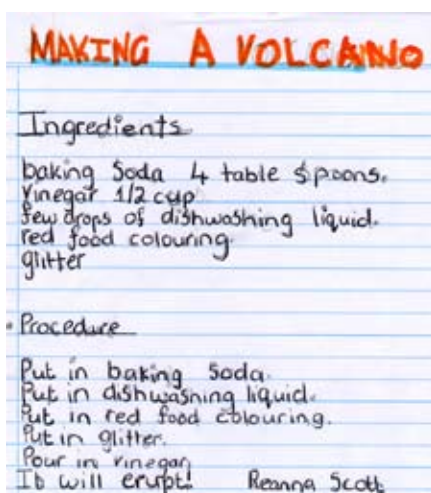 MAKING A VOLCANO
Ingredients
baking Soda 4 table spoons.
Vinegar 1/2 cup
few drops of dishwashing liquid.
red food colouring.
glitter
Procedure
Put in baking Soda.
Put in dishwashing liquid.
Put in red food colouring.
Put in glitter.
Pour in vinegar
It will erupt! Reanna Scott